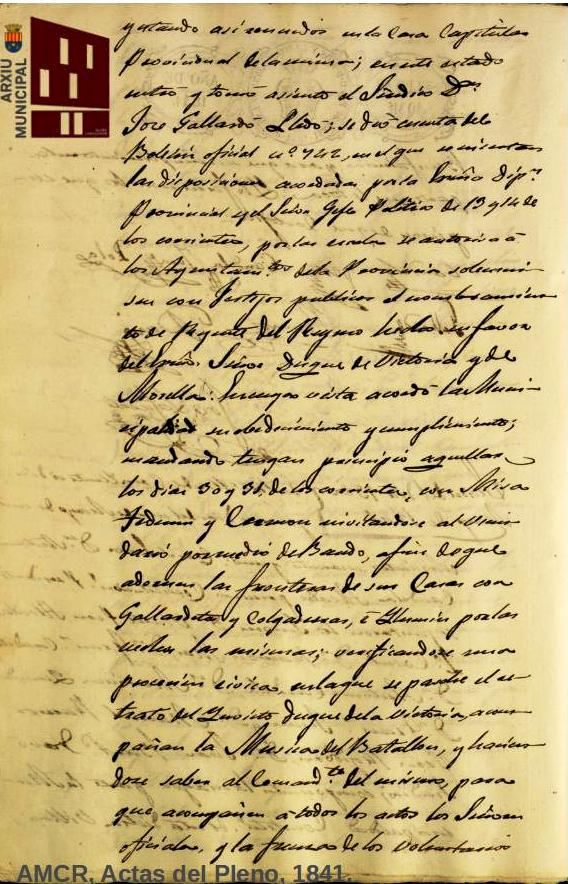 ARXIU
MUNICIPAL
yuntando asi reunidos en la Casa Capitular
Provicional de la misma; en este estado
entró y tomó asiento el Sindico Dn
Jose Gallardó Lledo; se dió cuenta del
Boletin oficial nº. 742, en el que se insertan
las disposiciones acordadas por la Exma Dipn.
Provincial y el Señor Gefe Politico de 13 y 14 de
los corrientes, por las cuales se autoriza á
los Ayuntamtos de la Provincia solemni-
sen con festejos publicos el nombramien-
to de Regente del Reyno hecho en favor
del Exmo. Señor Duque de Victoria y de
Morella. En cuya vista acordó la Muni-
cipalidad su obedecimiento y cumplimiento;
mandando tengan principio aquellos
los dias 30 y 31 de los corrientes, con Misa
Tedeum y Cermon invitandose al Vecin-
dario por medio de Bando, a fin de que
adornen las fronteras de sus Casas con
Gallardetes y Colgaduras, é Ylumin por las
noches las mismas; verificandose una
procecion civica, en la que se pasee el re-
trato del Ynvicto Duque de la Victoria, acom-
pañan la Musica del Batallon, y hacien-
dose saber al Comandte. del mismo, para
que acompañen a todos los actos los Señores
oficiales, y la fuerza de los Voluntarios
AMCR, Actas del Pleno, 1841.